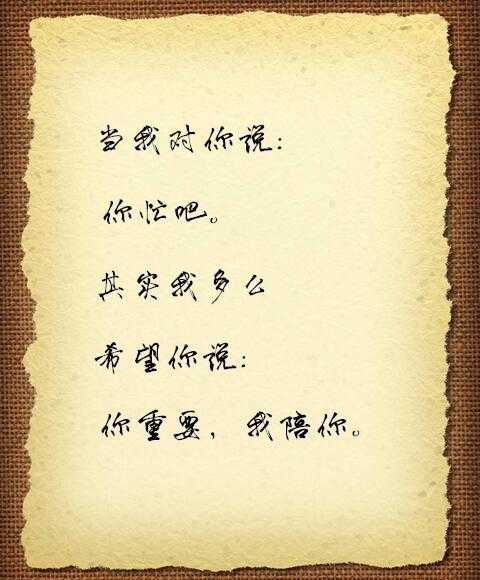 当我对你说：
你忙吧。
其实我多么
希望你说：
你重要，我陪你。